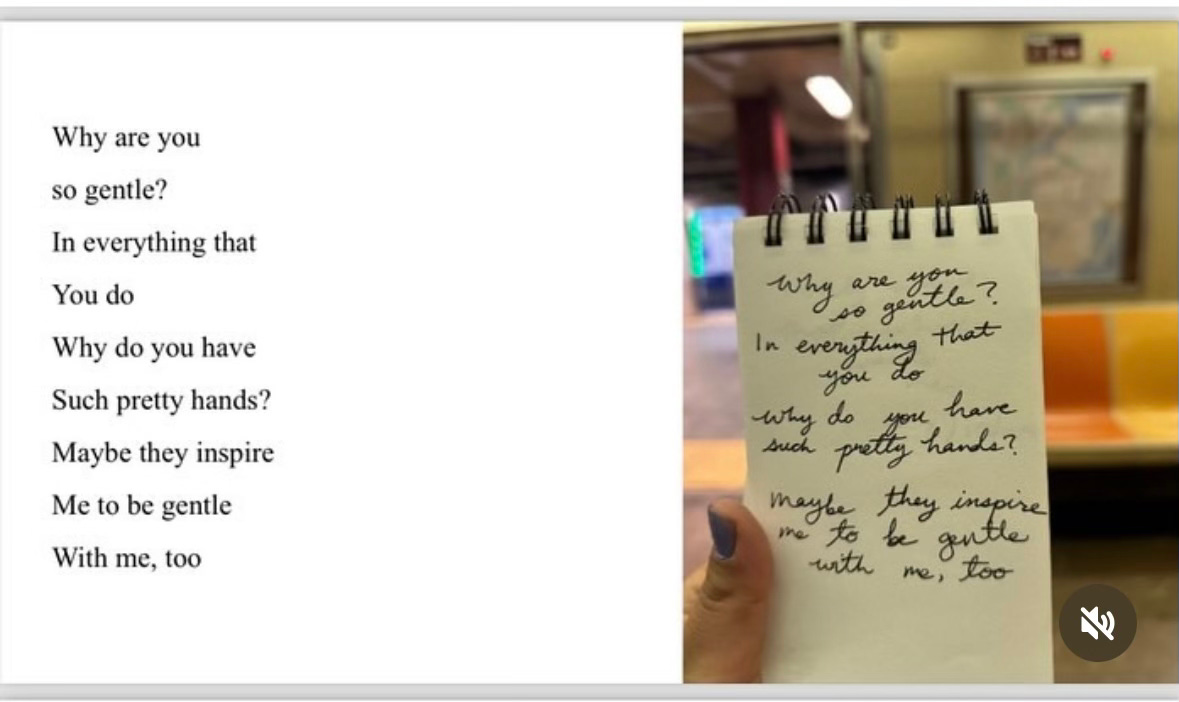 Why are you
so gentle?
In everything that
You do
Why do you have
Such pretty hands?
Maybe they inspire
Me to be gentle
With me, too
Why are you
so gentle?
In everything that
you do
why do you have
such pretty hands?
maybe they inspire
me to be gentle
with me, too